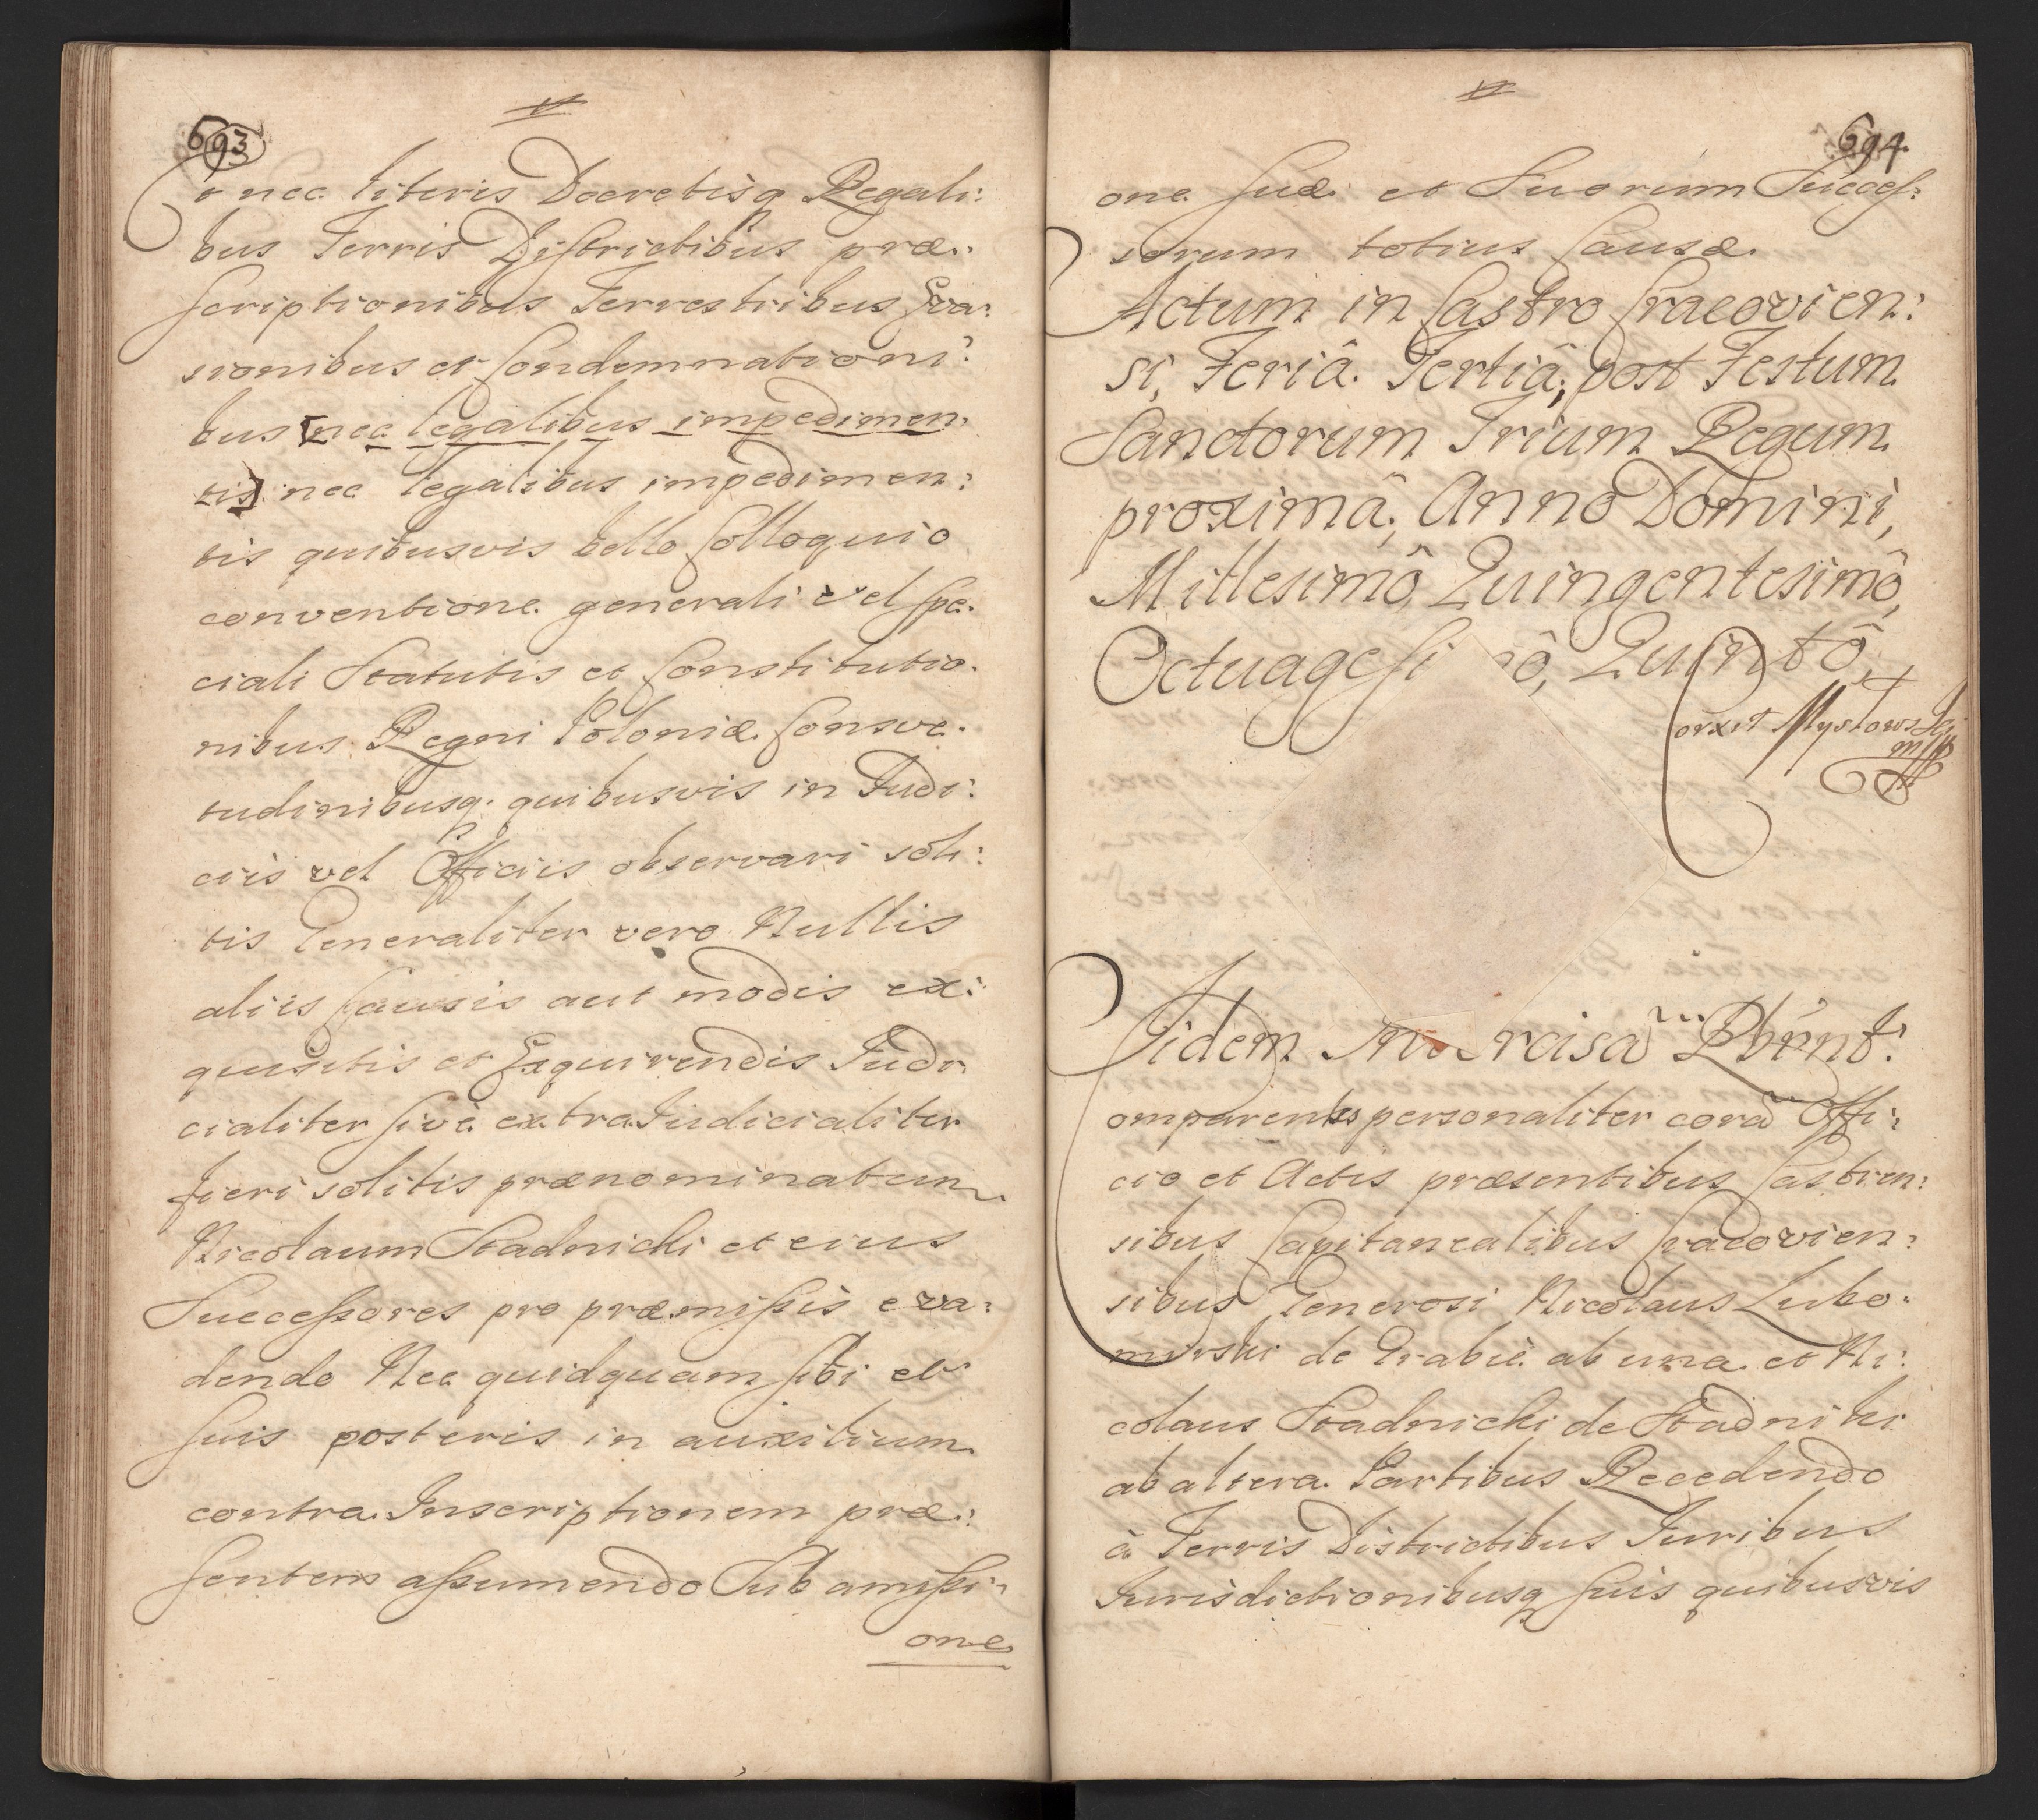 693
o nec literis Decretisq Regali:
bus Terris Districtibus præ:
scriptionibus Terrestribus Eva:
sionibus et Condemnationi:
bus [nec legalibus impedimen:
tis] nec legalibus impedimen:
tis quibusvis bello Colloquio
conventione generali vel spe:
ciali Statutis et Constitutio:
nibus Regni Poloniæ Consve:
tudinibusq; quibusvis in Judi:
ciis vel Officiis observari soli:
tis Generaliter vero Nullis
aliis Causis aut modis ex:
quisitis et Exquirendis Judi:
cialiter sive extra Judicialiter
fieri solitis prænominatum
Nicolaum Stadnicki et eius
Successores pro præmissis eva:
dendo Nec quidquam sibi et
suis posteris in auxilium
contra Inscriptionem præ:
sentem assumendo Sub amissi:
one
694.
one suæ et Suorum Succes:
sorum totius Causæ.
Actum in Castro Cracovien:
si, Feriâ Tertiâ, post Festum
Sanctorum Trium Regum
proximâ, Anno Domini,
Millesimô, Quingentesimô,
Octuagesi ô, Quintô,
Corxit Mysłowski
mpp
Iidem rcisa Pbrnt:
omparentes personaliter corā Offi:
cio et Actis præsentibus Castren:
sibus Capitanealibus Cracovien:
sibus Generosi Nicolaus Lubo:
mirski de Grabie ab una et Ni:
colaus Stadnicki de Stadniki
ab altera Partibus Recedendo
à Terris Districtibus Juribus
Jurisdictionibusq suis quibusvis